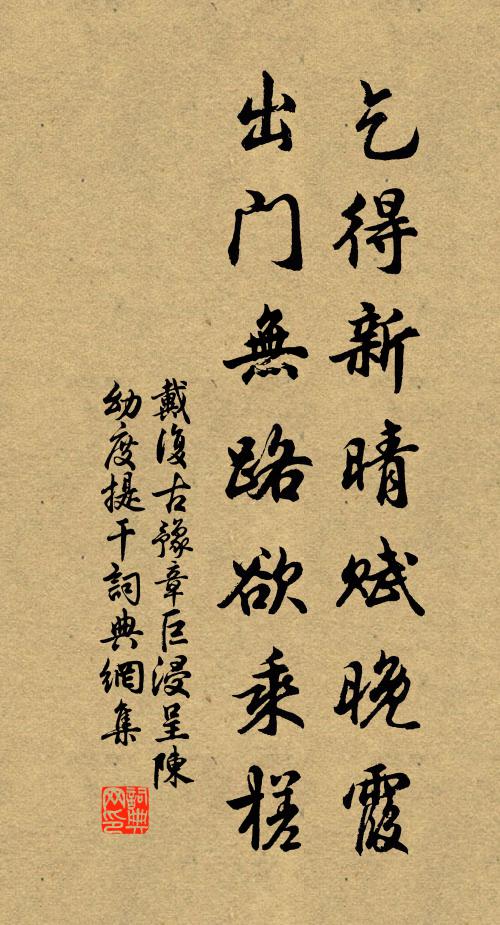 乞得新晴賦晚霞
出門無路欲乘槎
戴復古豫章巨浸呈陳
幼度提干詞典網集
詞典網印